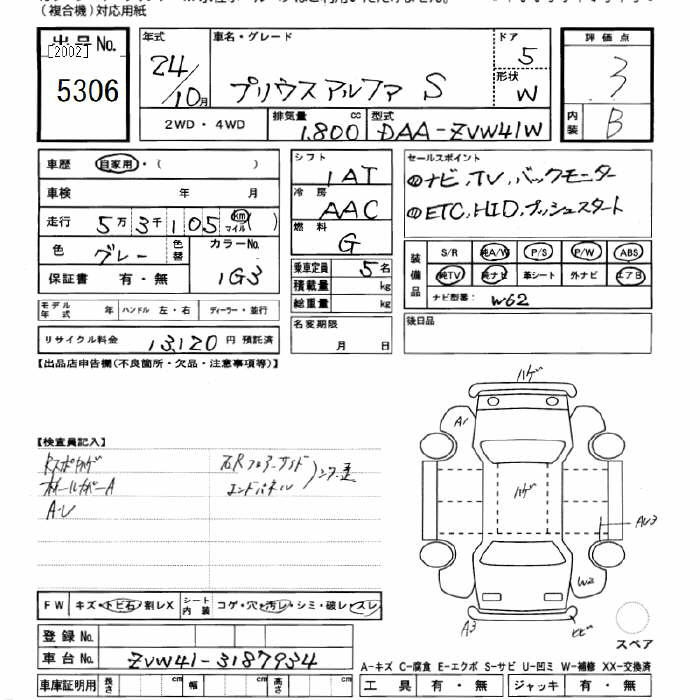 (複合機)対応用紙
出品No. 年式 車名・グレード ドア 評価点
[2002] 24/10月 プリウスアルファ S 5 3
5306 形状 W
2WD・4WD 排気量 1,800 cc 型式 DAA-ZVW41W 内装 B
車歴 自家用・( ) シフト 1AT セールスポイント
車検 年 月 冷房 AAC ナビ,TV,バックモニター
走行 5万3千105 km マイル( ) 燃料 G ETC,HID,プッシュスタート
色 グレー 色替 カラーNo. 1G3 乗車定員 5名 装備品 S/R 純A/W P/S P/W ABS
保証書 有・無 積載量 kg 純TV 純ナビ 革シート 外ナビ エアB
総重量 kg ナビ型番: W62
モデル年式 年 ハンドル 左・右 ディーラー・並行 名変期限 月 日 後日品
リサイクル料金 13,120 円 預託済
【出品店申告欄(不良箇所・欠品・注意事項等)】
ハゲ
A1
【検査員記入】
ホイールカバーA エンドパネル
A-U
ハゲ
AU3
W2
FW キズ・トビ石・割レX シート内装 コゲ・穴・汚レ・シミ・破レ・スレ
A3 ヒビ
登録No. スペア
車台No. ZVW41-3187934 A-キズ C-腐食 E-エクボ S-サビ U-凹ミ W-補修 XX-交換済
車庫証明用 長さ cm 幅 cm 高さ cm 工具 有・無 ジャッキ 有・無